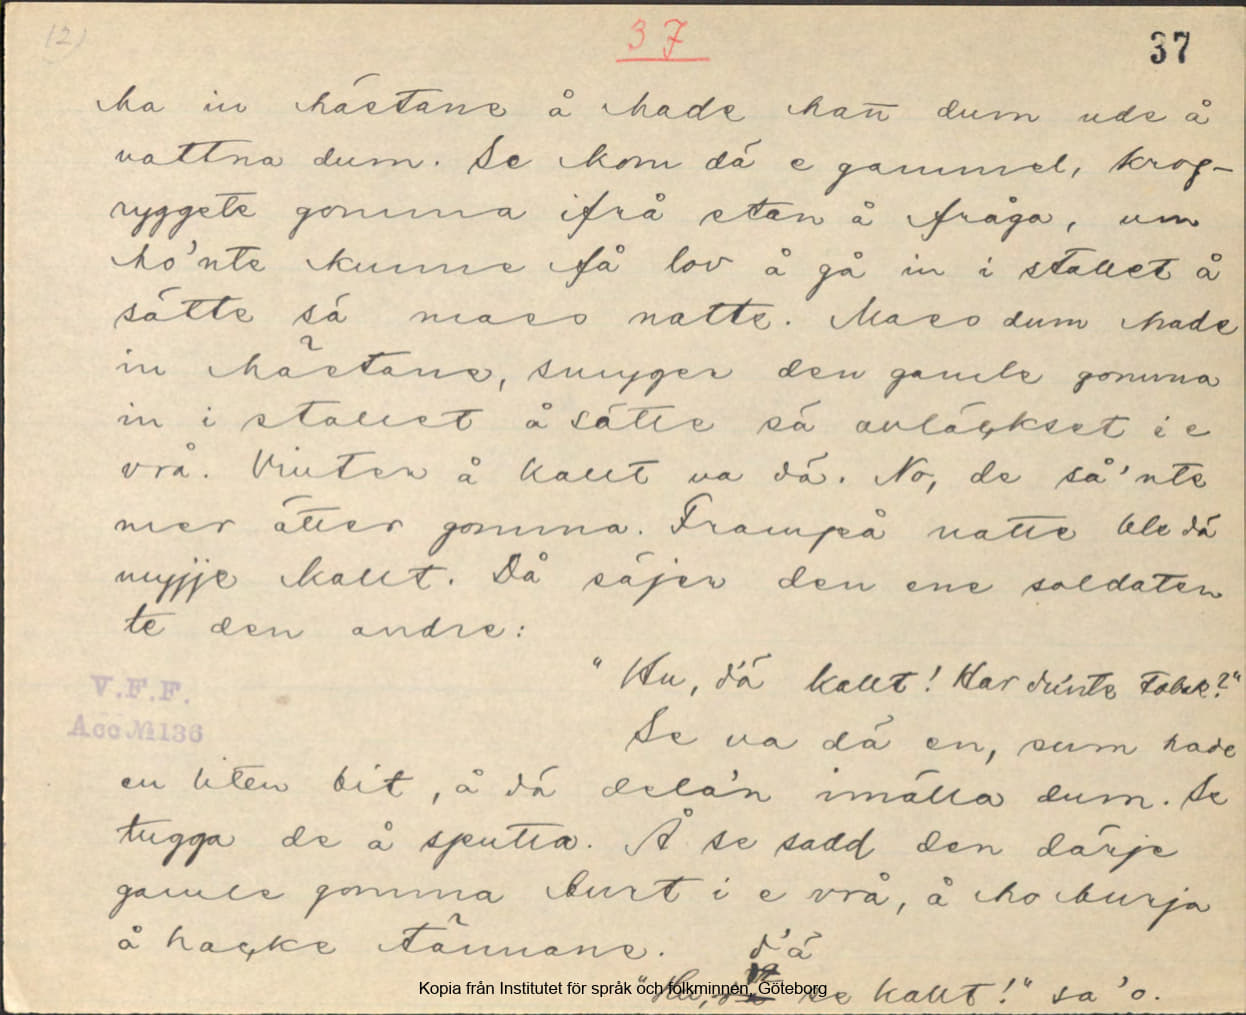 12)
37
37
ha in hästane å hade han̄ dum ude å
vattna dum. Se kom dá e gammel, krog-
ryggete gomma ifrå stan å fråga, um
ho'nte kunne få lov å gå in i stallet å
sátte sá maso natte. Maso dum hade
in hästane, smyger den gamle gomma
in i stallet å sátte sá avläçkset i e
vrå. Vinter å kallt va dá. No, de så'nte
mer átter gomma. Frampå natte ble dá
myjje kallt. Då säjer den ene soldaten
te den andre:
"Hu, d'á kallt! Har du'nte tobak?"
Se va dá en, sum hade
en liten bit, å dá dela'n imálla dum. Se
tugga de å sputta. Å se sadd den därje
gamle gomma burt i e vrå, å ho burja
å haçke tännane.
d'á
"Hu, se kallt!" sa'o.
V.F.F.
Acc № 136
Kopia från Institutet för språk och folkminnen, Göteborg